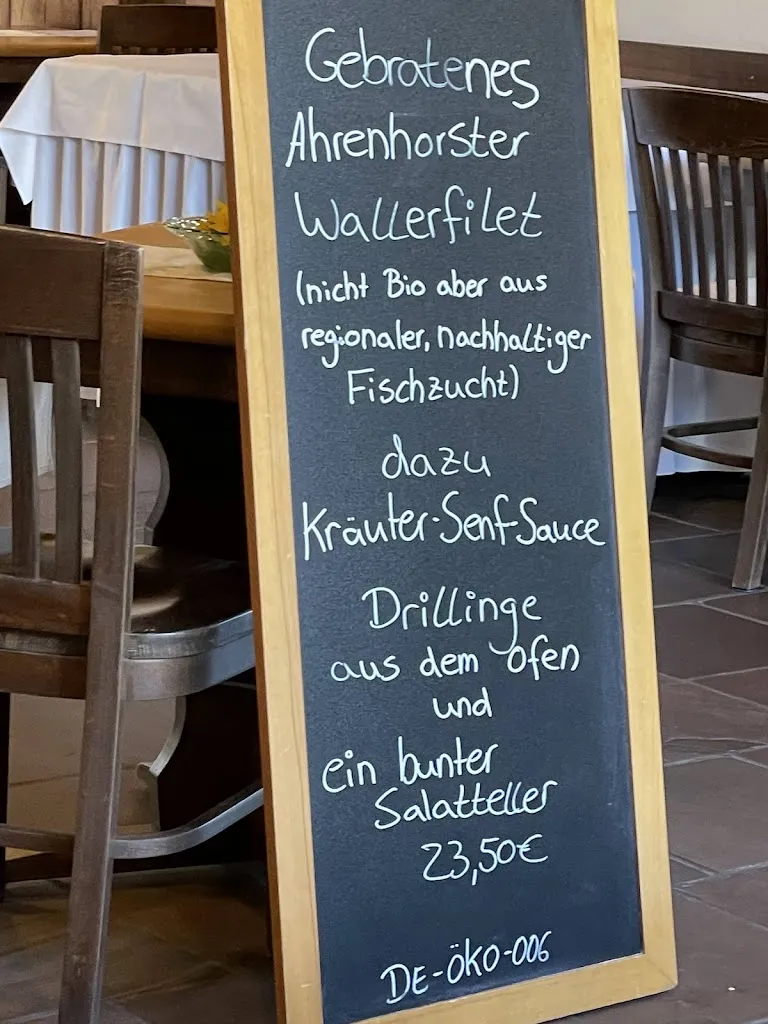 Gebratenes
Ahrenhorster
Wallerfilet
(nicht Bio aber aus
regionaler, nachhaltiger
Fischzucht)
dazu
Kräuter-Senf-Sauce
Drillinge
aus dem Ofen
und
ein bunter
Salatteller
23,50€
DE-ÖKO-006